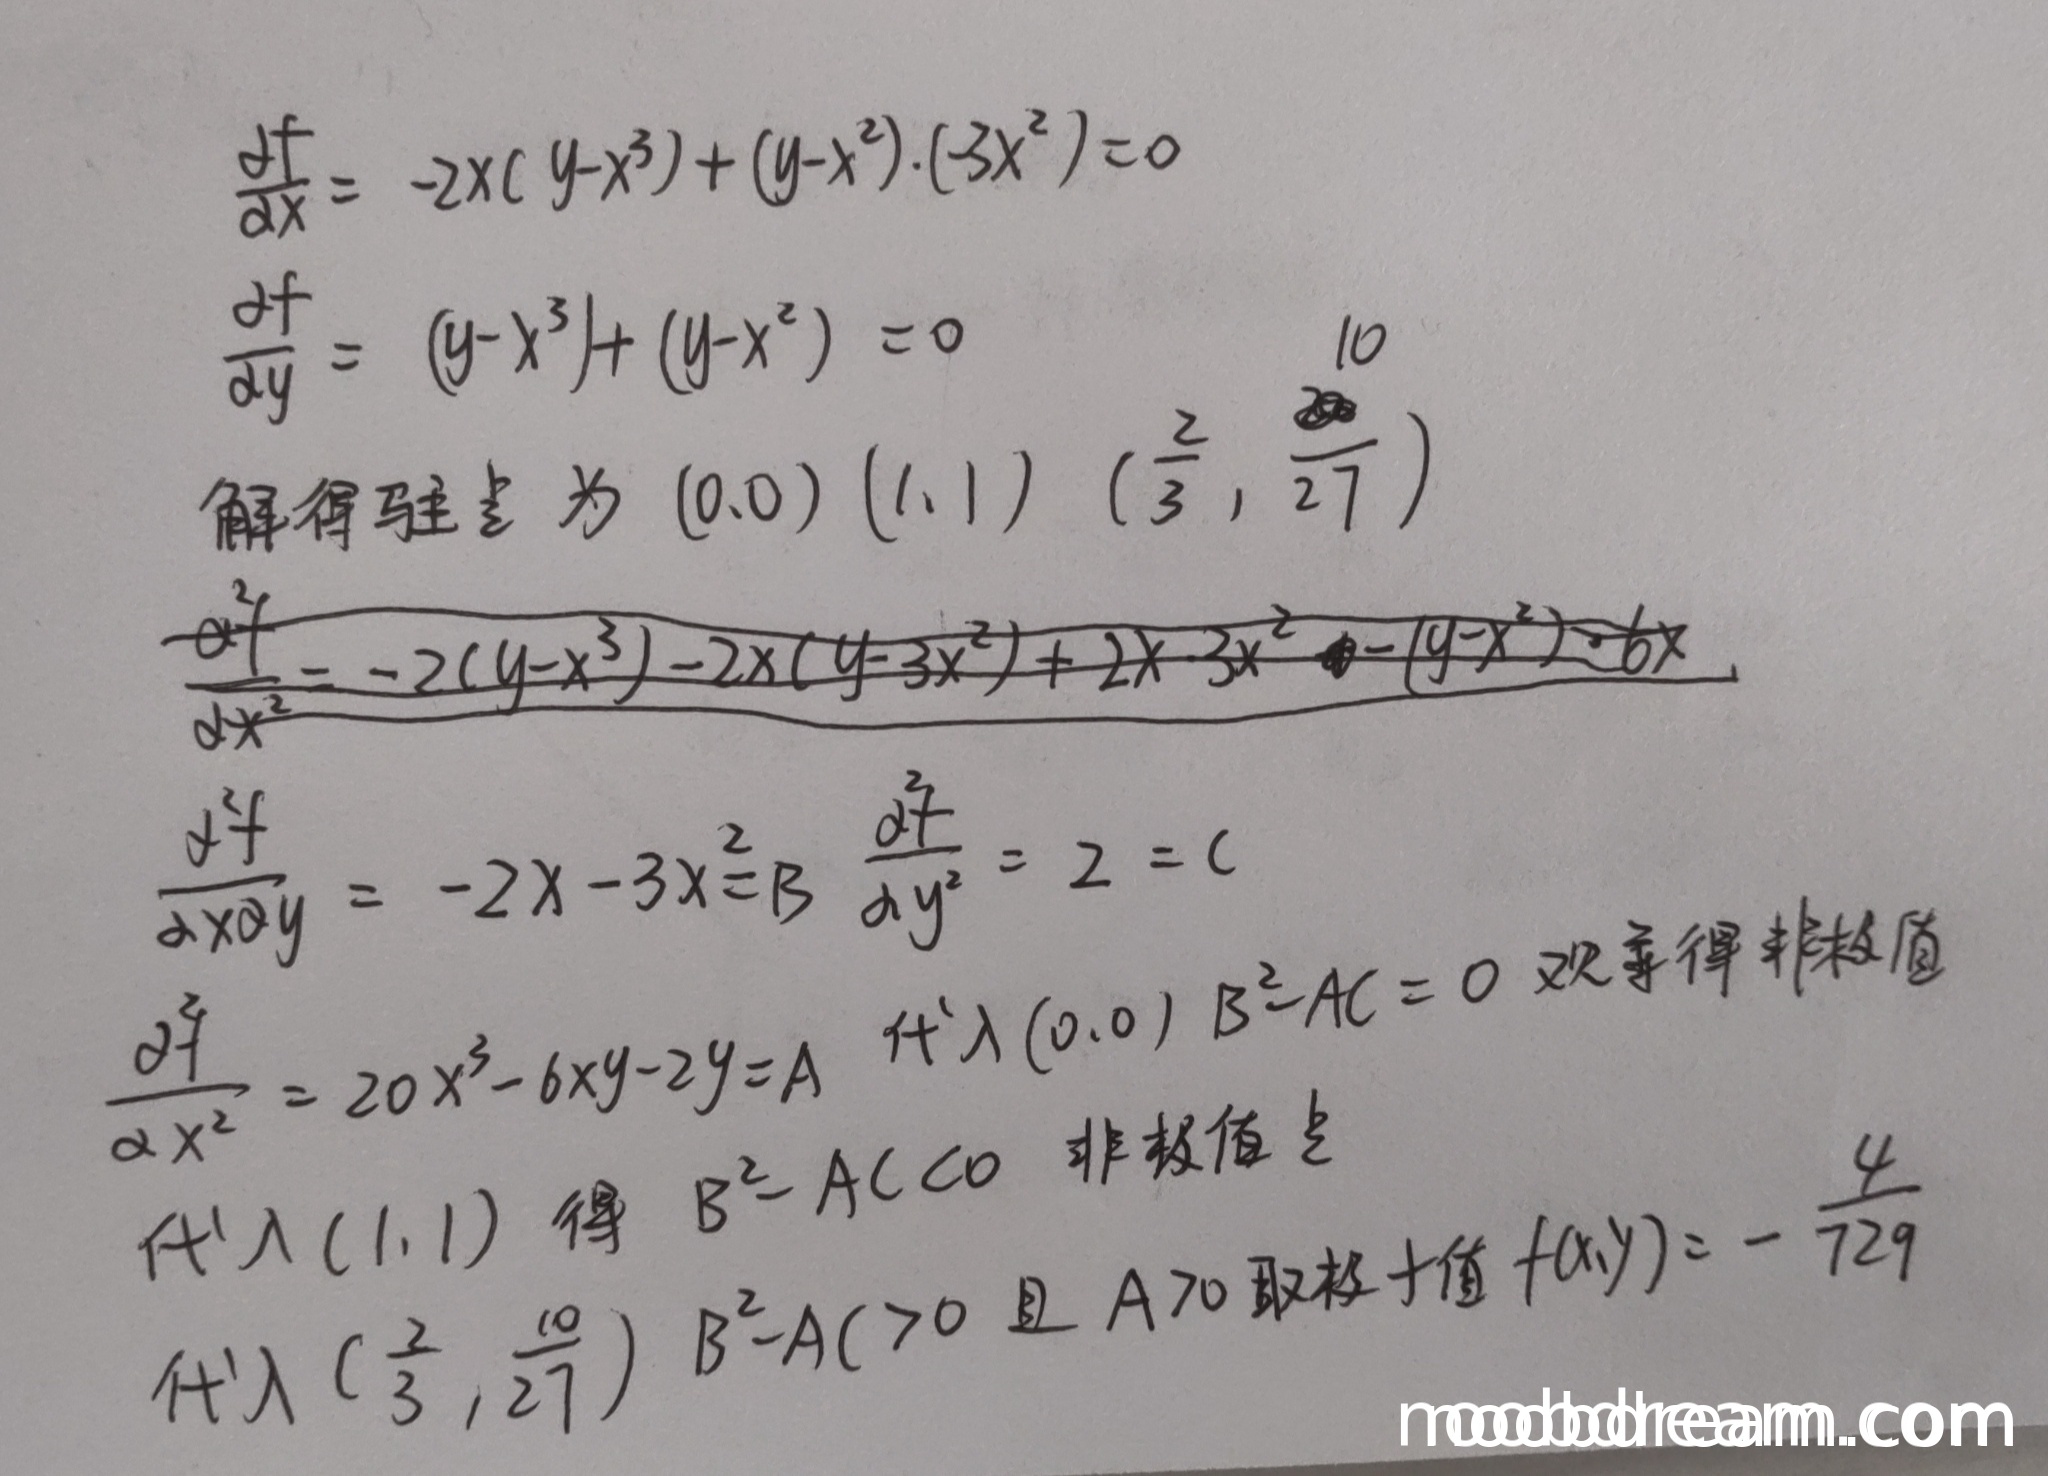 ∂f/∂x = -2x(y-x³)+(y-x²)·(-3x²)=0
∂f/∂y = (y-x³)+(y-x²) =0
解得驻点为 (0,0) (1,1) (2/3, 10/27)
∂²f/∂x² = -2(y-x³)-2x(y-3x²)+2x·3x² -(y-x²)·6x
∂²f/∂x∂y = -2x-3x²=B ∂²f/∂y² = 2 = C
∂²f/∂x² = 20x³-6xy-2y=A 代入(0,0) B²-AC=0 观察得非极值
代入(1,1) 得 B²-AC<0 非极值点
代入(2/3, 10/27) B²-AC>0 且 A>0 取极小值 f(x,y)= -4/729
noobdream.com